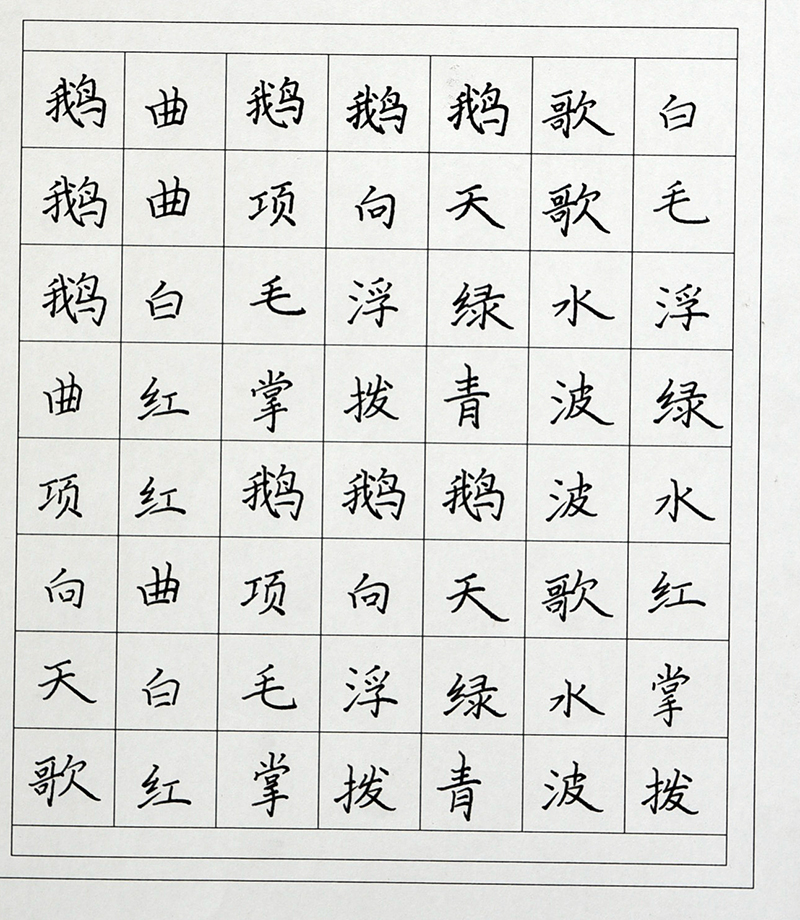 鹅曲鹅鹅鹅歌白
鹅曲项向天歌毛
鹅白毛浮绿水浮
曲红掌拨青波绿
项红鹅鹅鹅波水
向曲项向天歌红
天白毛浮绿水掌
歌红掌拨青波拨